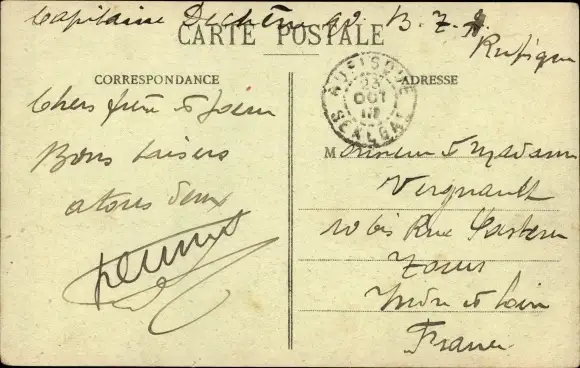 Capitaine
B. Z.
Rufisque
CARTE POSTALE
CORRESPONDANCE
ADRESSE
RUFISQUE
23
OCT
SENEGAL
Chers frère et
Bons baisers
à tous deux
Monsieur et Madame
Vergnault
10 bis Rue Pasteur
Tours
Indre et Loire
France